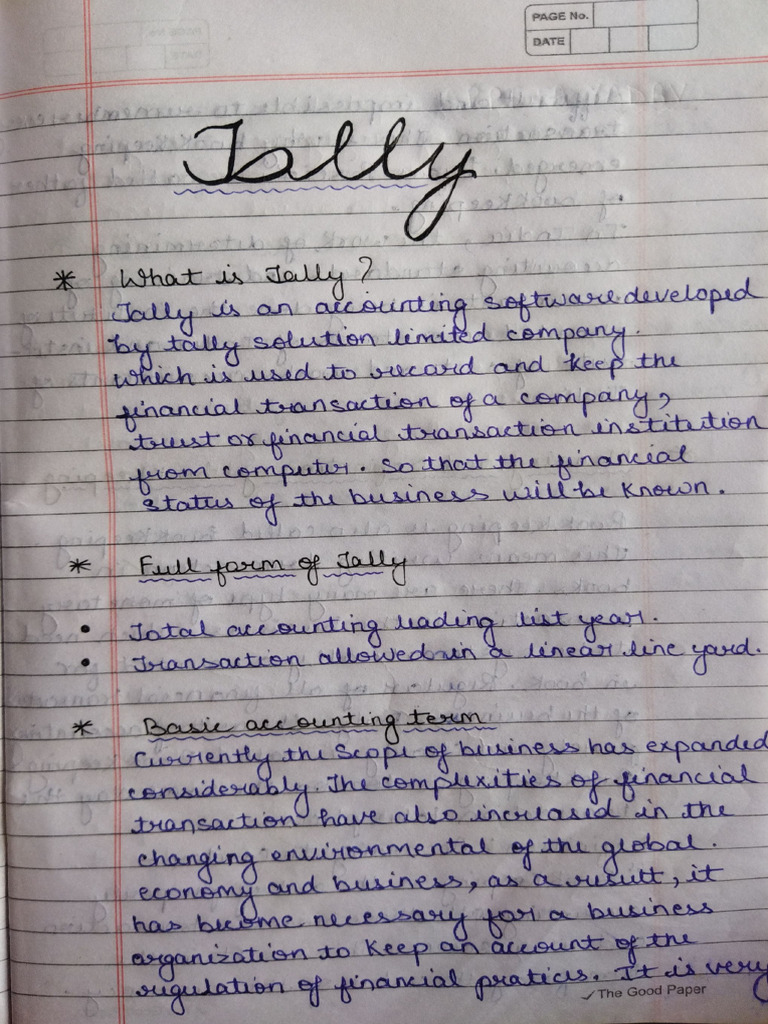 PAGE No.
DATE
Tally
* What is Tally?
Tally is an accounting software developed
by tally solution limited company.
which is used to record and keep the
financial transaction of a company,
trust or financial transaction institution
from computer. So that the financial
status of the business will be known.
* Full form of Tally
• Total accounting leading list year.
• Transaction allowed in a linear line yard.
* Basic accounting term
Currently the scope of business has expanded
considerably. The complexities of financial
transaction have also increased in the
changing environmental of the global.
economy and business, as a result, it
has become necessary for a business
organization to keep an account of the
regulation of financial pratices. It is very
The Good Paper